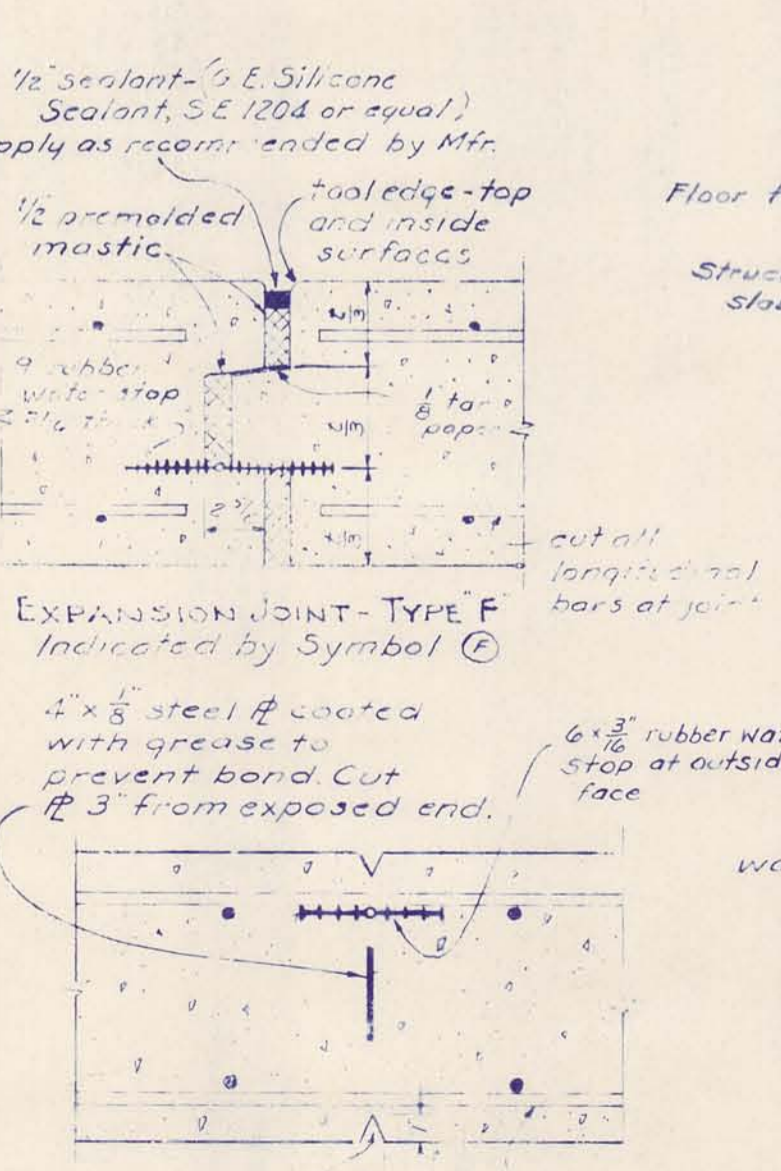 1/2" sealant-(G E. Silicone
Sealant, SE 1204 or equal)
apply as recommended by Mfr.
1/2 premolded
mastic
tool edge-top
and inside
surfaces
9 rubber
water stop
1/8 tar
paper
cut all
longitudinal
bars at joint
EXPANSION JOINT-TYPE "F"
Indicated by Symbol Ⓕ
Floor
4"x 1/8" steel ℄ coated
with grease to
prevent bond. Cut
℄ 3" from exposed end.
6 x 3/16" rubber
stop at outside
face